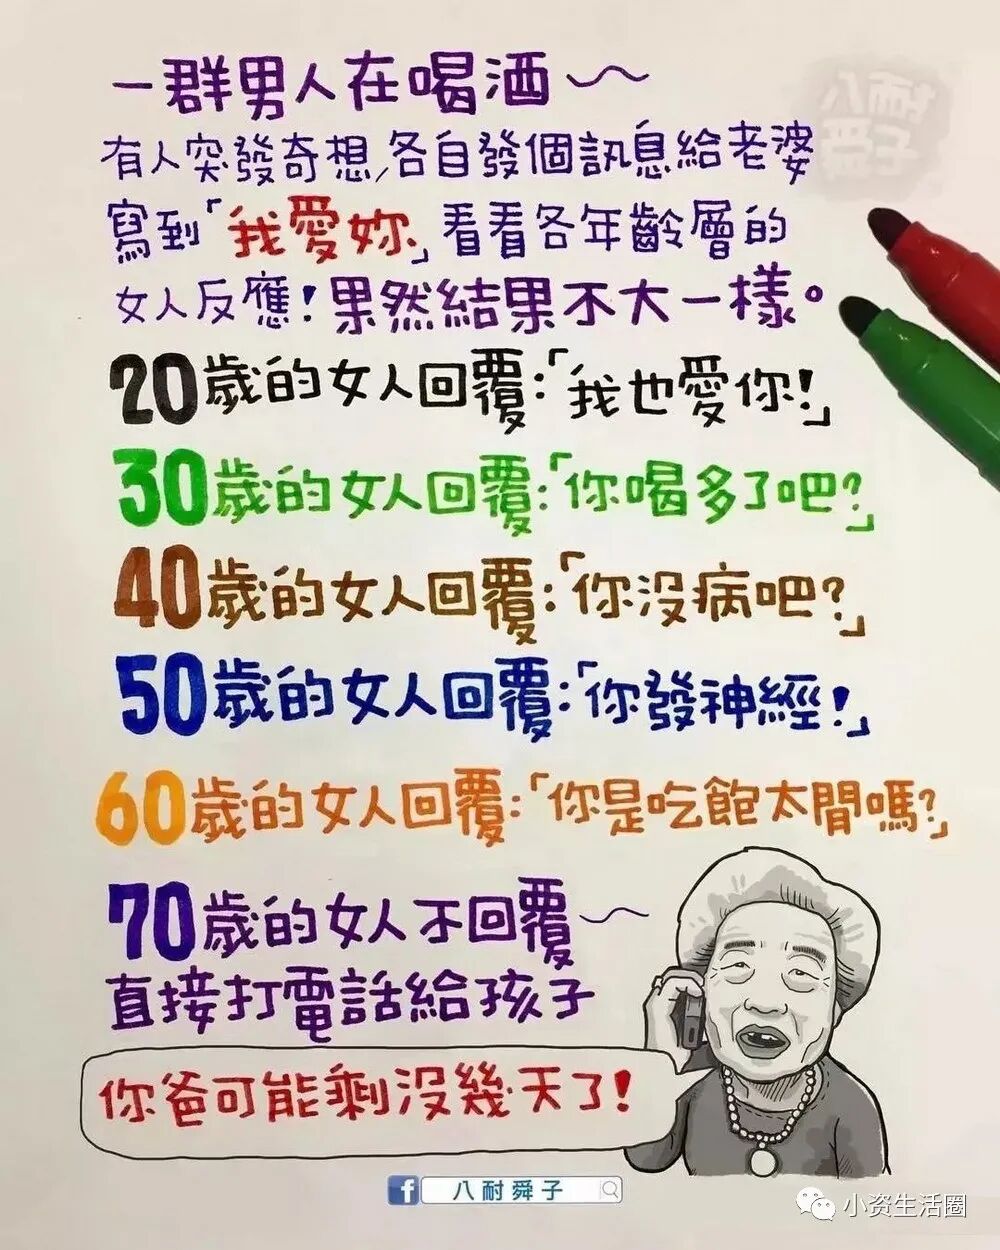 一群男人在喝酒～
有人突發奇想,各自發個訊息給老婆
寫到「我愛妳」看看各年齡層的
女人反應！果然結果不大一樣。
20歲的女人回覆:「我也愛你!」
30歲的女人回覆:「你喝多了吧?」
40歲的女人回覆:「你没病吧?」
50歲的女人回覆:「你發神經!」
60歲的女人回覆:「你是吃飽太閒嗎?」
70歲的女人不回覆～
直接打電話給孩子
你爸可能剩没幾天了!
八耐舜子
小资生活圈
八耐
舜子